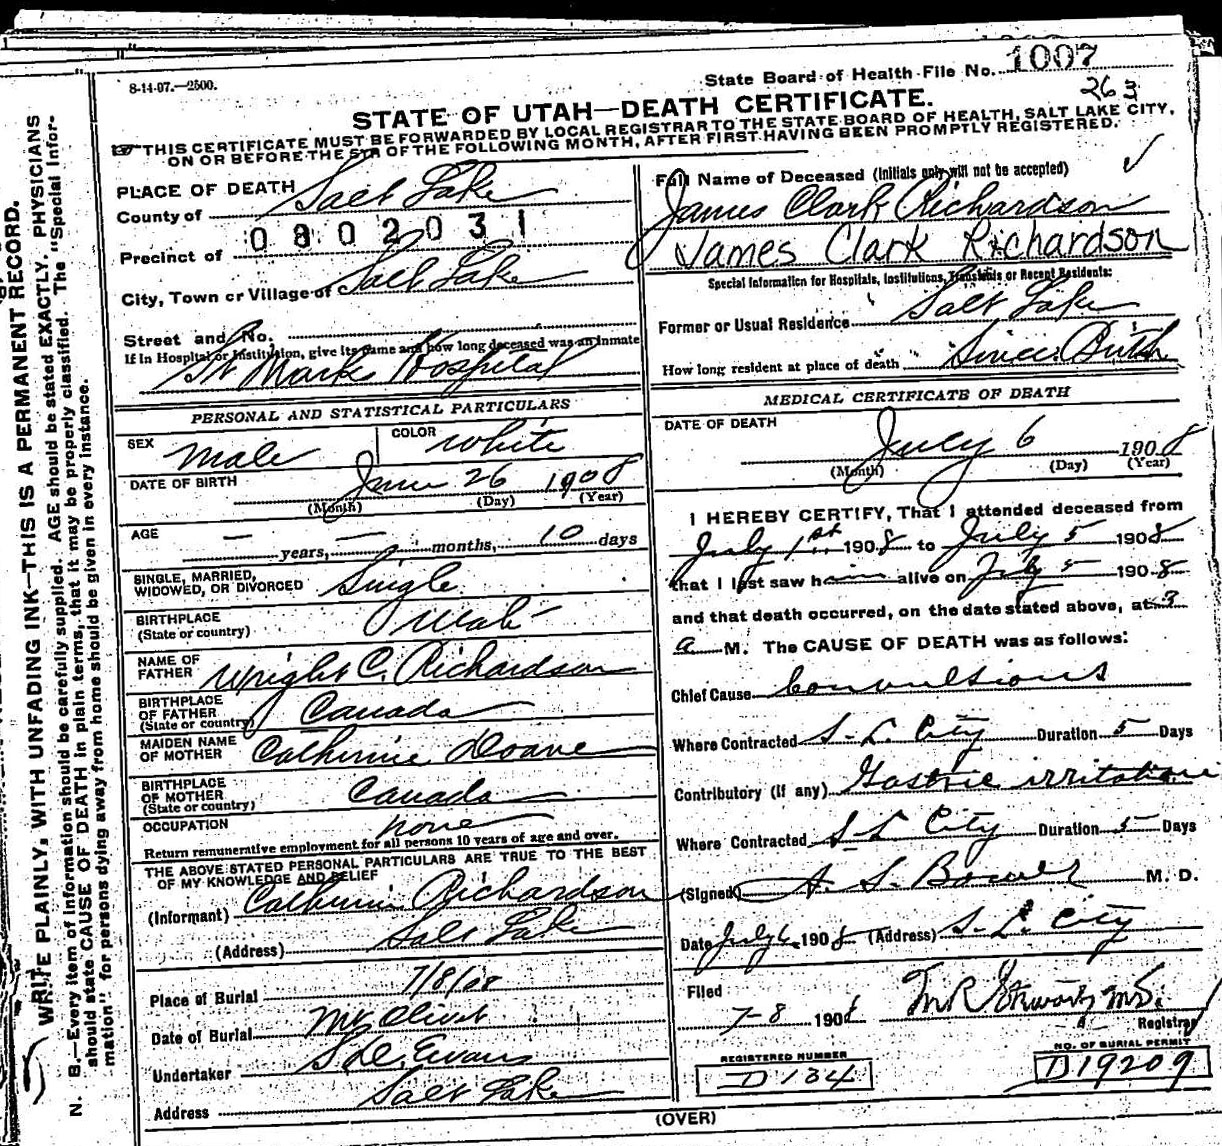 8-14-07.—2500.
State Board of Health File No. 1007
263
STATE OF UTAH—DEATH CERTIFICATE.
THIS CERTIFICATE MUST BE FORWARDED BY LOCAL REGISTRAR TO THE STATE BOARD OF HEALTH, SALT LAKE CITY,
ON OR BEFORE THE 5TH OF THE FOLLOWING MONTH, AFTER FIRST HAVING BEEN PROMPTLY REGISTERED.
WRITE PLAINLY, WITH UNFADING INK—THIS IS A PERMANENT RECORD.
N. B.—Every item of information should be carefully supplied. AGE should be stated EXACTLY. PHYSICIANS
should state CAUSE OF DEATH in plain terms, that it may be properly classified. The "Special Infor-
mation" for persons dying away from home should be given in every instance.
PLACE OF DEATH
County of Salt Lake
0802031
Precinct of
City, Town or Village of Salt Lake
Street and No.
If in Hospital or Institution, give its name and how long deceased was an inmate
St Marks Hospital
PERSONAL AND STATISTICAL PARTICULARS
SEX Male COLOR White
DATE OF BIRTH June 26 1908
(Month) (Day) (Year)
AGE — years, — months, 10 days
SINGLE, MARRIED,
WIDOWED, OR DIVORCED Single
BIRTHPLACE
(State or country) Utah
NAME OF
FATHER Wright C. Richardson
BIRTHPLACE
OF FATHER
(State or country) Canada
MAIDEN NAME
OF MOTHER Catherine Doane
BIRTHPLACE
OF MOTHER
(State or country) Canada
OCCUPATION none
Return remunerative employment for all persons 10 years of age and over.
THE ABOVE STATED PERSONAL PARTICULARS ARE TRUE TO THE BEST
OF MY KNOWLEDGE AND BELIEF
(Informant) Catherine Richardson
(Address) Salt Lake
Place of Burial 7/8/08
Date of Burial Mt Olivet
Undertaker S D Evans
Address Salt Lake
Full Name of Deceased (Initials only will not be accepted)
James Clark Richardson
James Clark Richardson
Special Information for Hospitals, Institutions, Transients or Recent Residents:
Former or Usual Residence Salt Lake
How long resident at place of death Since Birth
MEDICAL CERTIFICATE OF DEATH
DATE OF DEATH
July 6 1908
(Month) (Day) (Year)
I HEREBY CERTIFY, That I attended deceased from
July 1st 1908 to July 5 1908
that I last saw him alive on July 5 1908
and that death occurred, on the date stated above, at 3
a M. The CAUSE OF DEATH was as follows:
Chief Cause Convulsions
Where Contracted S. L. City Duration 5 Days
Contributory (if any) Gastric irritation
Where Contracted S L City Duration 5 Days
(Signed) A. S. Bower M. D.
Date July 6 1908 (Address) S. L. City
Filed
7-8 1908
Registrar
REGISTERED NUMBER
D 134
NO. OF BURIAL PERMIT
D19209
(OVER)